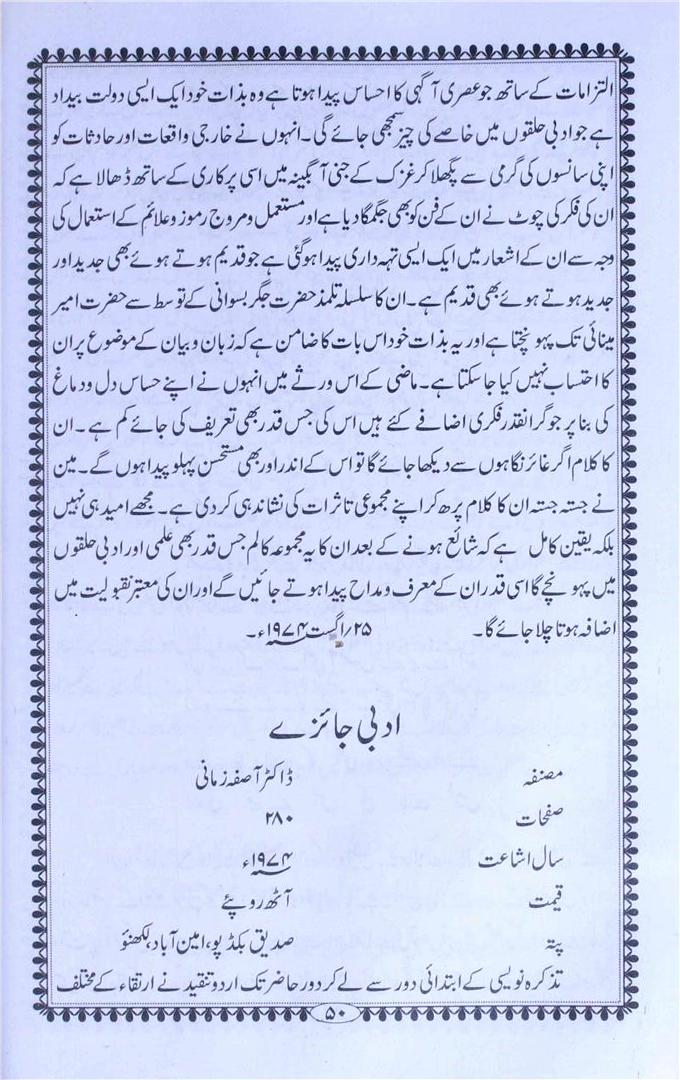 التزامات کے ساتھ جو عصری آگہی کا احساس پیدا ہوتا ہے وہ بذات خود ایک ایسی دولت بیداد
ہے جو ادبی حلقوں میں خاصے کی چیز سمجھی جائے گی۔ انہوں نے خارجی واقعات اور حادثات کو
اپنی سانسوں کی گرمی سے پگھلا کر غزک کے جنی آبگینہ میں اسی پرکاری کے ساتھ ڈھالا ہے کہ
ان کی فکر کی چوٹ نے ان کے فن کو بھی جگمگا دیا ہے اور مستعمل و مروج رموز و علائم کے استعمال کی
وجہ سے ان کے اشعار میں ایک ایسی تہہ داری پیدا ہو گئی ہے جو قدیم ہوتے ہوئے بھی جدید اور
جدید ہوتے ہوئے بھی قدیم ہے۔ ان کا سلسلہ تلمذ حضرت جگر بسوانی کے توسط سے حضرت امیر
مینائی تک پہونچتا ہے اور یہ بذات خود اس بات کا ضامن ہے کہ زبان و بیان کے موضوع پر ان
کا احتساب نہیں کیا جا سکتا ہے۔ ماضی کے اس ورثے میں انہوں نے اپنے حساس دل و دماغ
کی بنا پر جو گرانقدر فکری اضافے کئے ہیں اس کی جس قدر بھی تعریف کی جائے کم ہے۔ ان
کا کلام اگر غائر نگاہوں سے دیکھا جائے گا تو اس کے اندر اور بھی مستحسن پہلو پیدا ہوں گے۔ مین
نے جستہ جستہ ان کا کلام پرھ کر اپنے مجموعی تاثرات کی نشاندہی کر دی ہے۔ مجھے امید ہی نہیں
بلکہ یقین کامل ہے کہ شائع ہونے کے بعد ان کا یہ مجموعہ کالم جس قدر بھی علمی اور ادبی حلقوں
میں پہونچے گا اسی قدر ان کے معرف و مداح پیدا ہوتے جائیں گے اور ان کی معتبر تقبولیت میں
اضافہ ہوتا چلا جائے گا۔ ۲۵؍اگست ۱۹۷۴ء۔
ادبی جائزے
مصنفہ ڈاکٹر آصفہ زمانی
صفحات ۲۸۰
سال اشاعت ۱۹۷۴ء
قیمت آٹھ روپئے
پتہ صدیق بکڈپو، امین آباد، لکھنؤ
تذکرہ نویسی کے ابتدائی دور سے لے کر دور حاضر تک اردو تنقید نے ارتقاء کے مختلف
۵۰